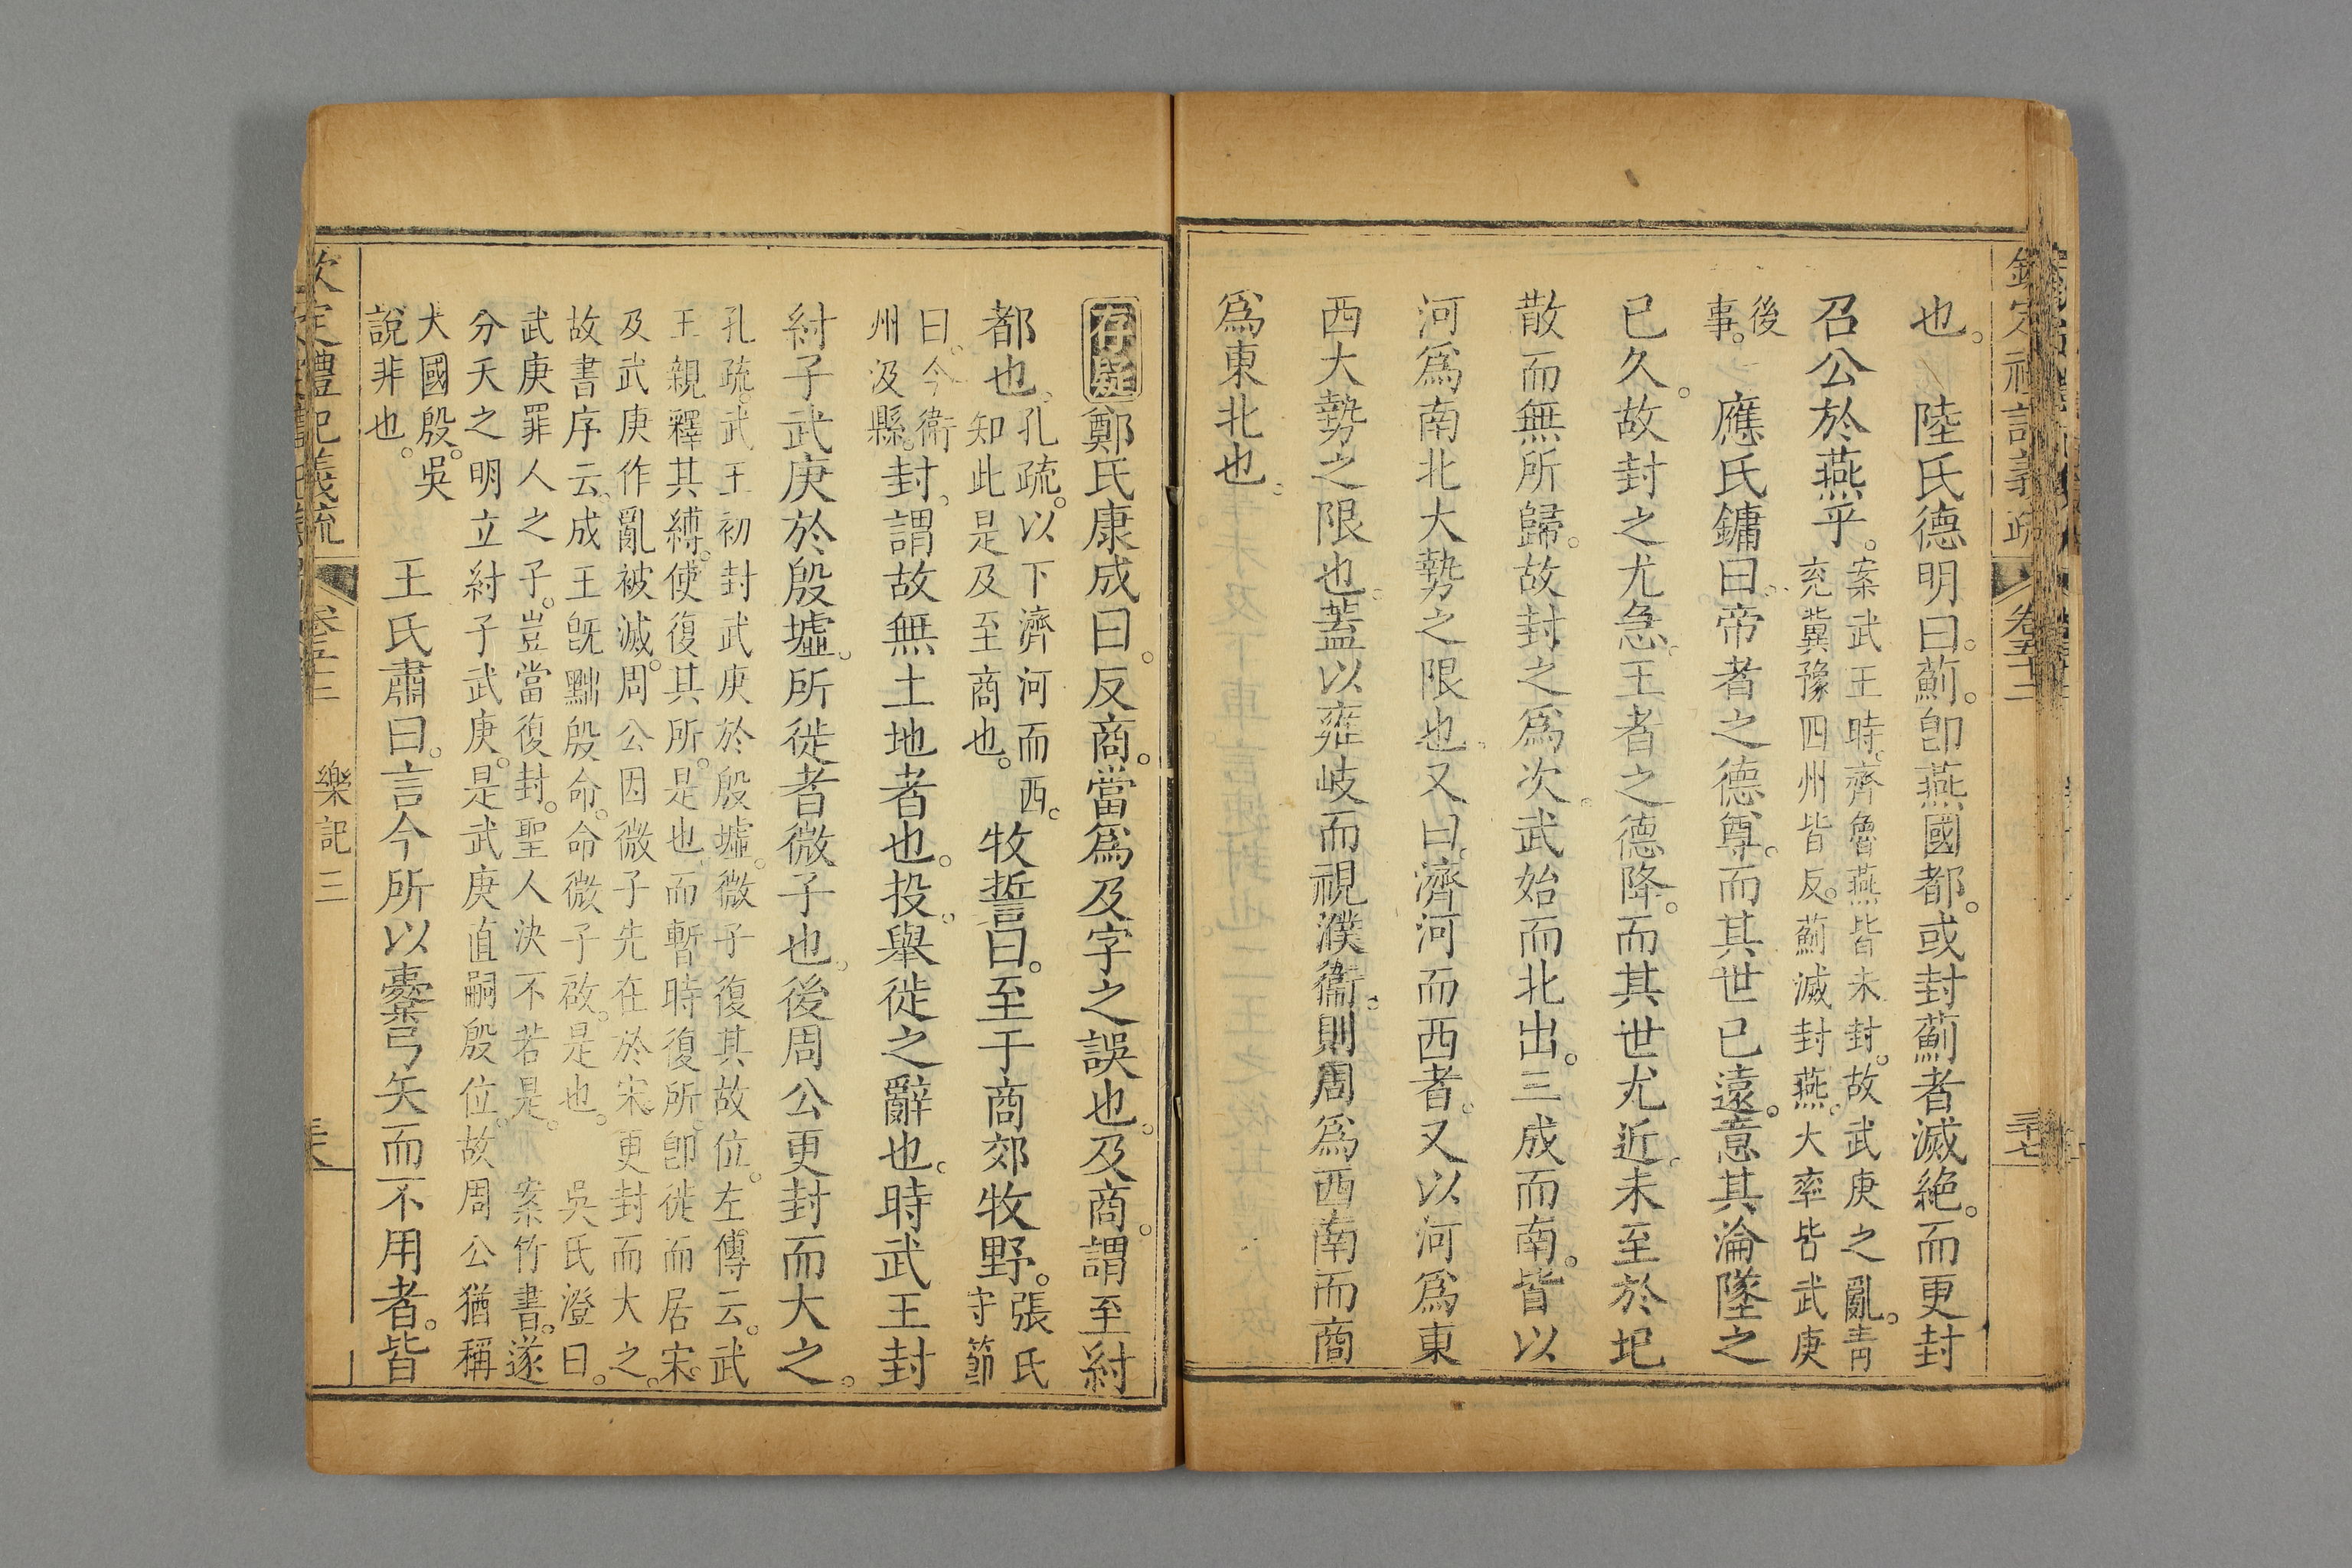 也。陸氏德明曰。薊。卽燕國都。或封薊者滅絶。而更封
召公於燕乎。案武王時。齊魯燕皆未封。故武庚之亂。靑
兖冀豫四州皆反。薊滅封燕。大率皆武庚
後
事。應氏鏞曰。帝者之德尊。而其世已遠。意其淪墜之
已久。故封之尤急。王者之德降。而其世尤近。未至於圯
散而無所歸。故封之爲次。武始而北出。三成而南。皆以
河爲南北大勢之限也。又曰。濟河而西者。又以河爲東
西大勢之限也。蓋以雍岐而視濮衞。則周爲西南而商
爲東北也。
卷五十二
三十七
存疑鄭氏康成曰。反商。當爲及字之誤也。及商。謂至紂
都也。孔疏。以下濟河而西。
知此是及至商也。牧誓曰。至于商郊牧野。張氏
守節
曰。今衞
州汲縣。封。謂故無土地者也。投。舉徙之辭也。時武王封
紂子武庚於殷墟。所徙者微子也。後周公更封而大之。
孔疏。武王初封武庚於殷墟。微子復其故位。左傳云。武
王親釋其縛。使復其所。是也。而暫時復所。卽徙而居宋。
及武庚作亂被滅。周公因微子先在於宋。更封而大之。
故書序云。成王旣黜殷命。命微子啟。是也。 吳氏澄曰。
武庚罪人之子。豈當復封。聖人決不若是。 案竹書。遂
分天之明立紂子武庚。是武庚直嗣殷位。故周公猶稱
大國殷。吳
說非也。王氏肅曰。言今所以櫜弓矢而不用者。皆
欽定禮記義疏
樂記三